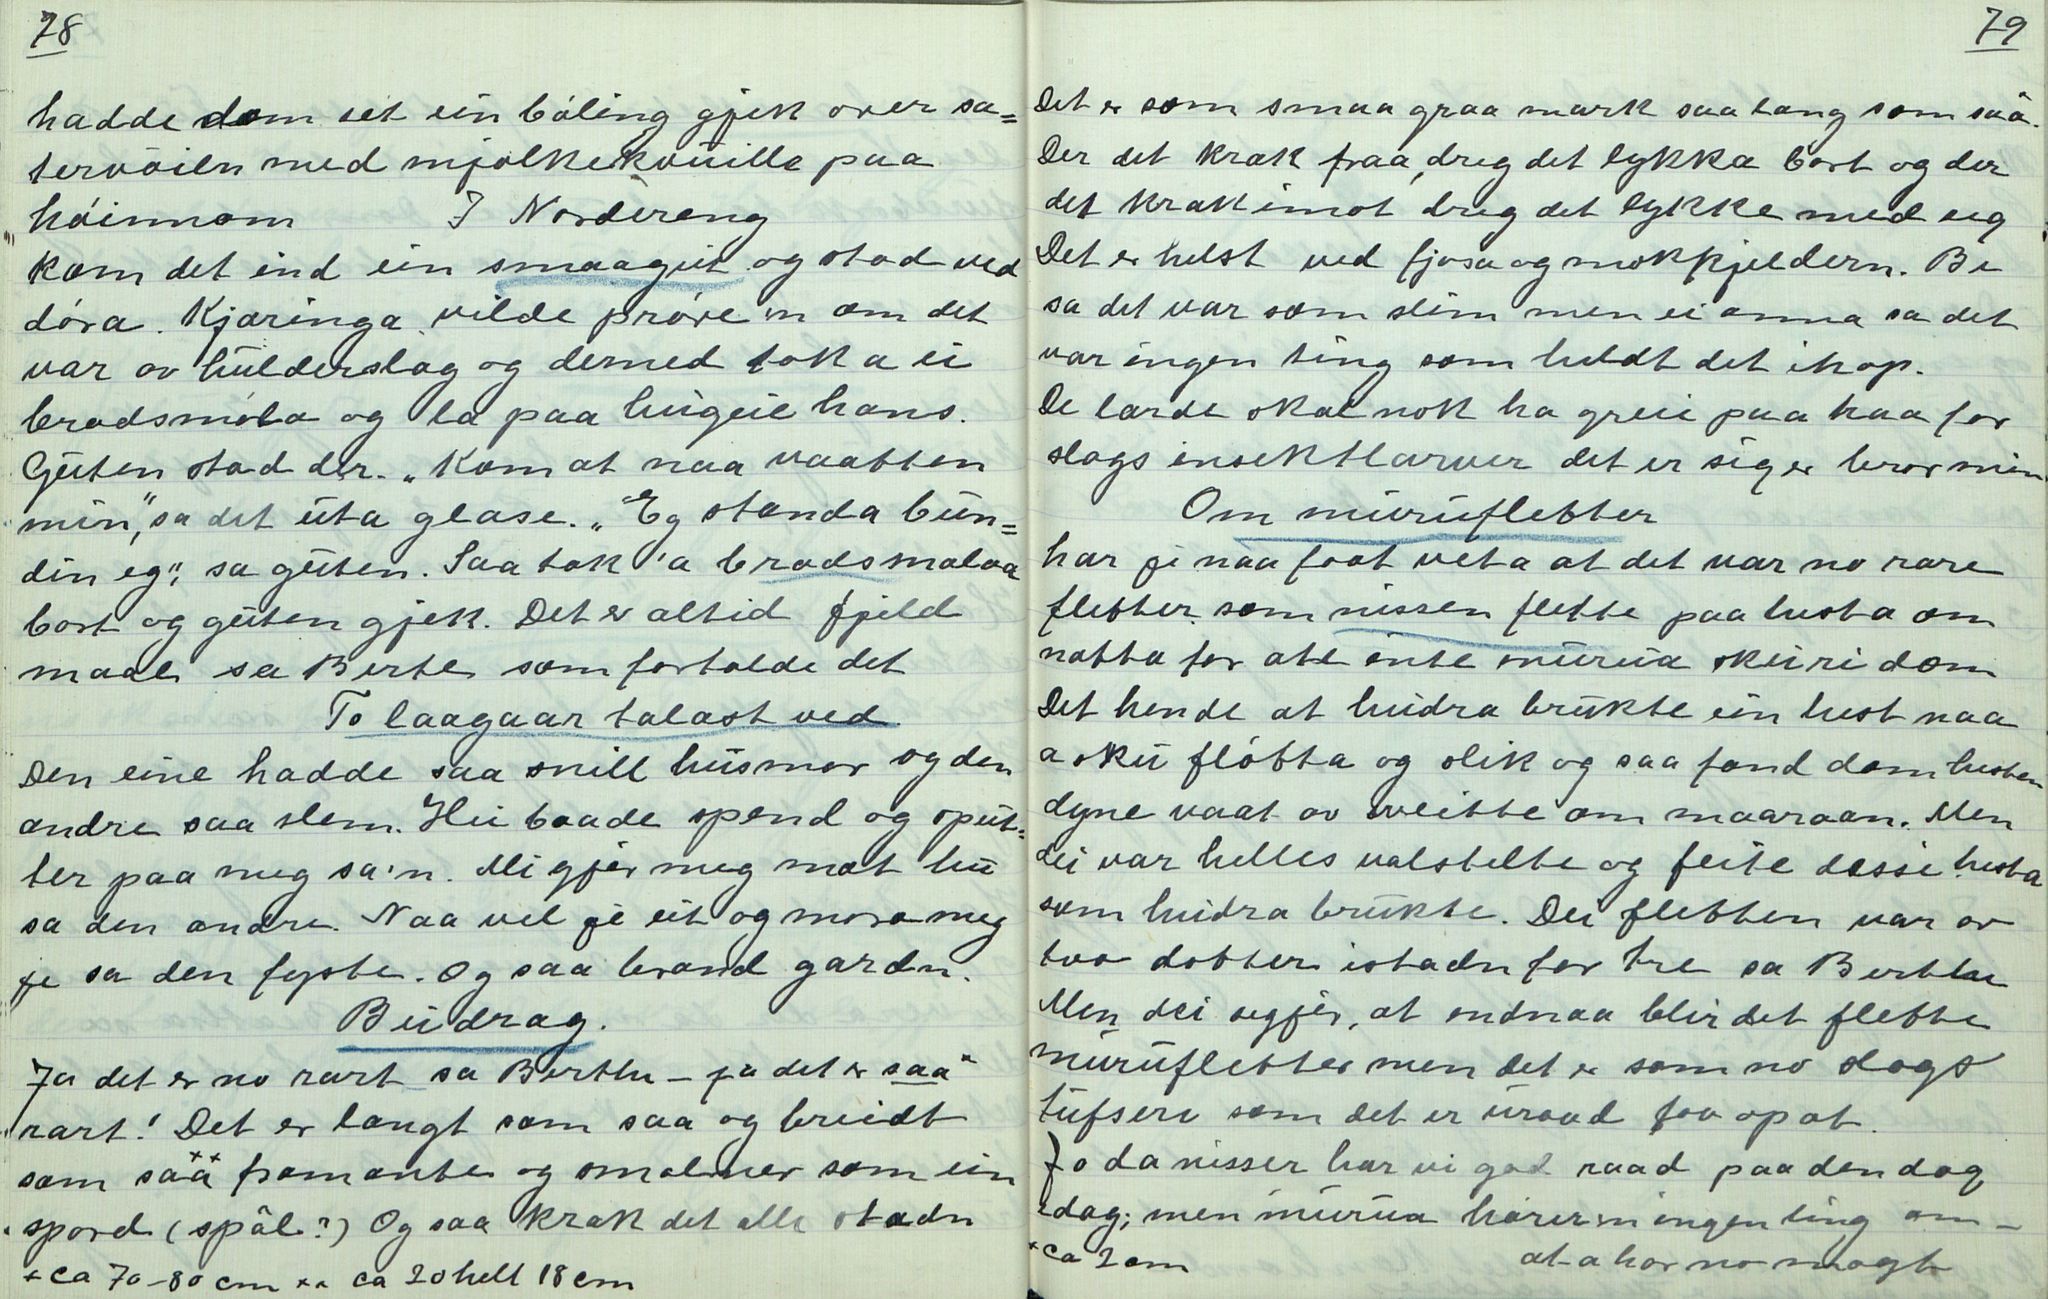 78
hadde dom set ein bøling gjek over sæ=
tervøiln med mjølkekvuille paa
høinnom I Nordereng
kom det ind ein smaagut og stod ved
døra. Kjæringa vilde prøve'n om det
var av hulderslag og dermed tok a ei
brødsmøla og la paa hugeie hans.
Guten stod der. „Kom at naa vaatten
min," sa det uta glase. „Eg standa bun=
din eg", sa guten. Saa tok 'a brødsmolaa
bort og guten gjek. Det er altid fjeld
maal sa Berte som fortalde det
To laagaar talast ved
Den eine hadde saa snill husmor og den
andre saa slem. Hu baade spend og sput=
ter paa meg sa'n. Mi gjer meg mat hu
sa den andre. Naa vel je ut og mora meg
je sa den fyste. Og saa brand gardn.
Budrag.
Ja det er no rart sa Berthe – ja det er saa*
rart! Det er langt som saa og breidt
som såå** framante og smalner som ein
spord (spål?) Og saa krak det alle stadn
* ca 70-80 cm ** ca 20 helt 18 cm
79
Det er som smaa graa mark saa lang som såå*
Der det krak fraa, dreg det lykka bort og der
det krak imot dreg det lykke med seg
Det er helst ved fjøsa og mokkjeldern. Be
sa det var som slim men ei anna sa det
var ingen ting som heldt det ihop.
De lærde skal nok ha greie paa haa for
slags insektlarver det er sig er bror min
Om muruflebter
har je naa faat veta at det var no rare
flebter som nissen flette paa hesta om
natta for att inte murua sku ri dom
Det hende at huidra brukte ein hest naa
a sku fløtta og slik og saa fand dom hesten
dyne vaat av sveitte om maaraan. Men
dei var helles valstelte og feite desse hesta
som huidra brukte. Dei flebten var av
tvo dotter istadn for tre sa Berthe
Men dei segjer, at endnaa blir det flebte
muruflebter men det er som no slags
tufseri som det er uraad faa opat.
Jo da nisser har vi god raad paa den dag
idag; men murua hører'n ingen ting om –
at a har no magt
* ca 2 cm